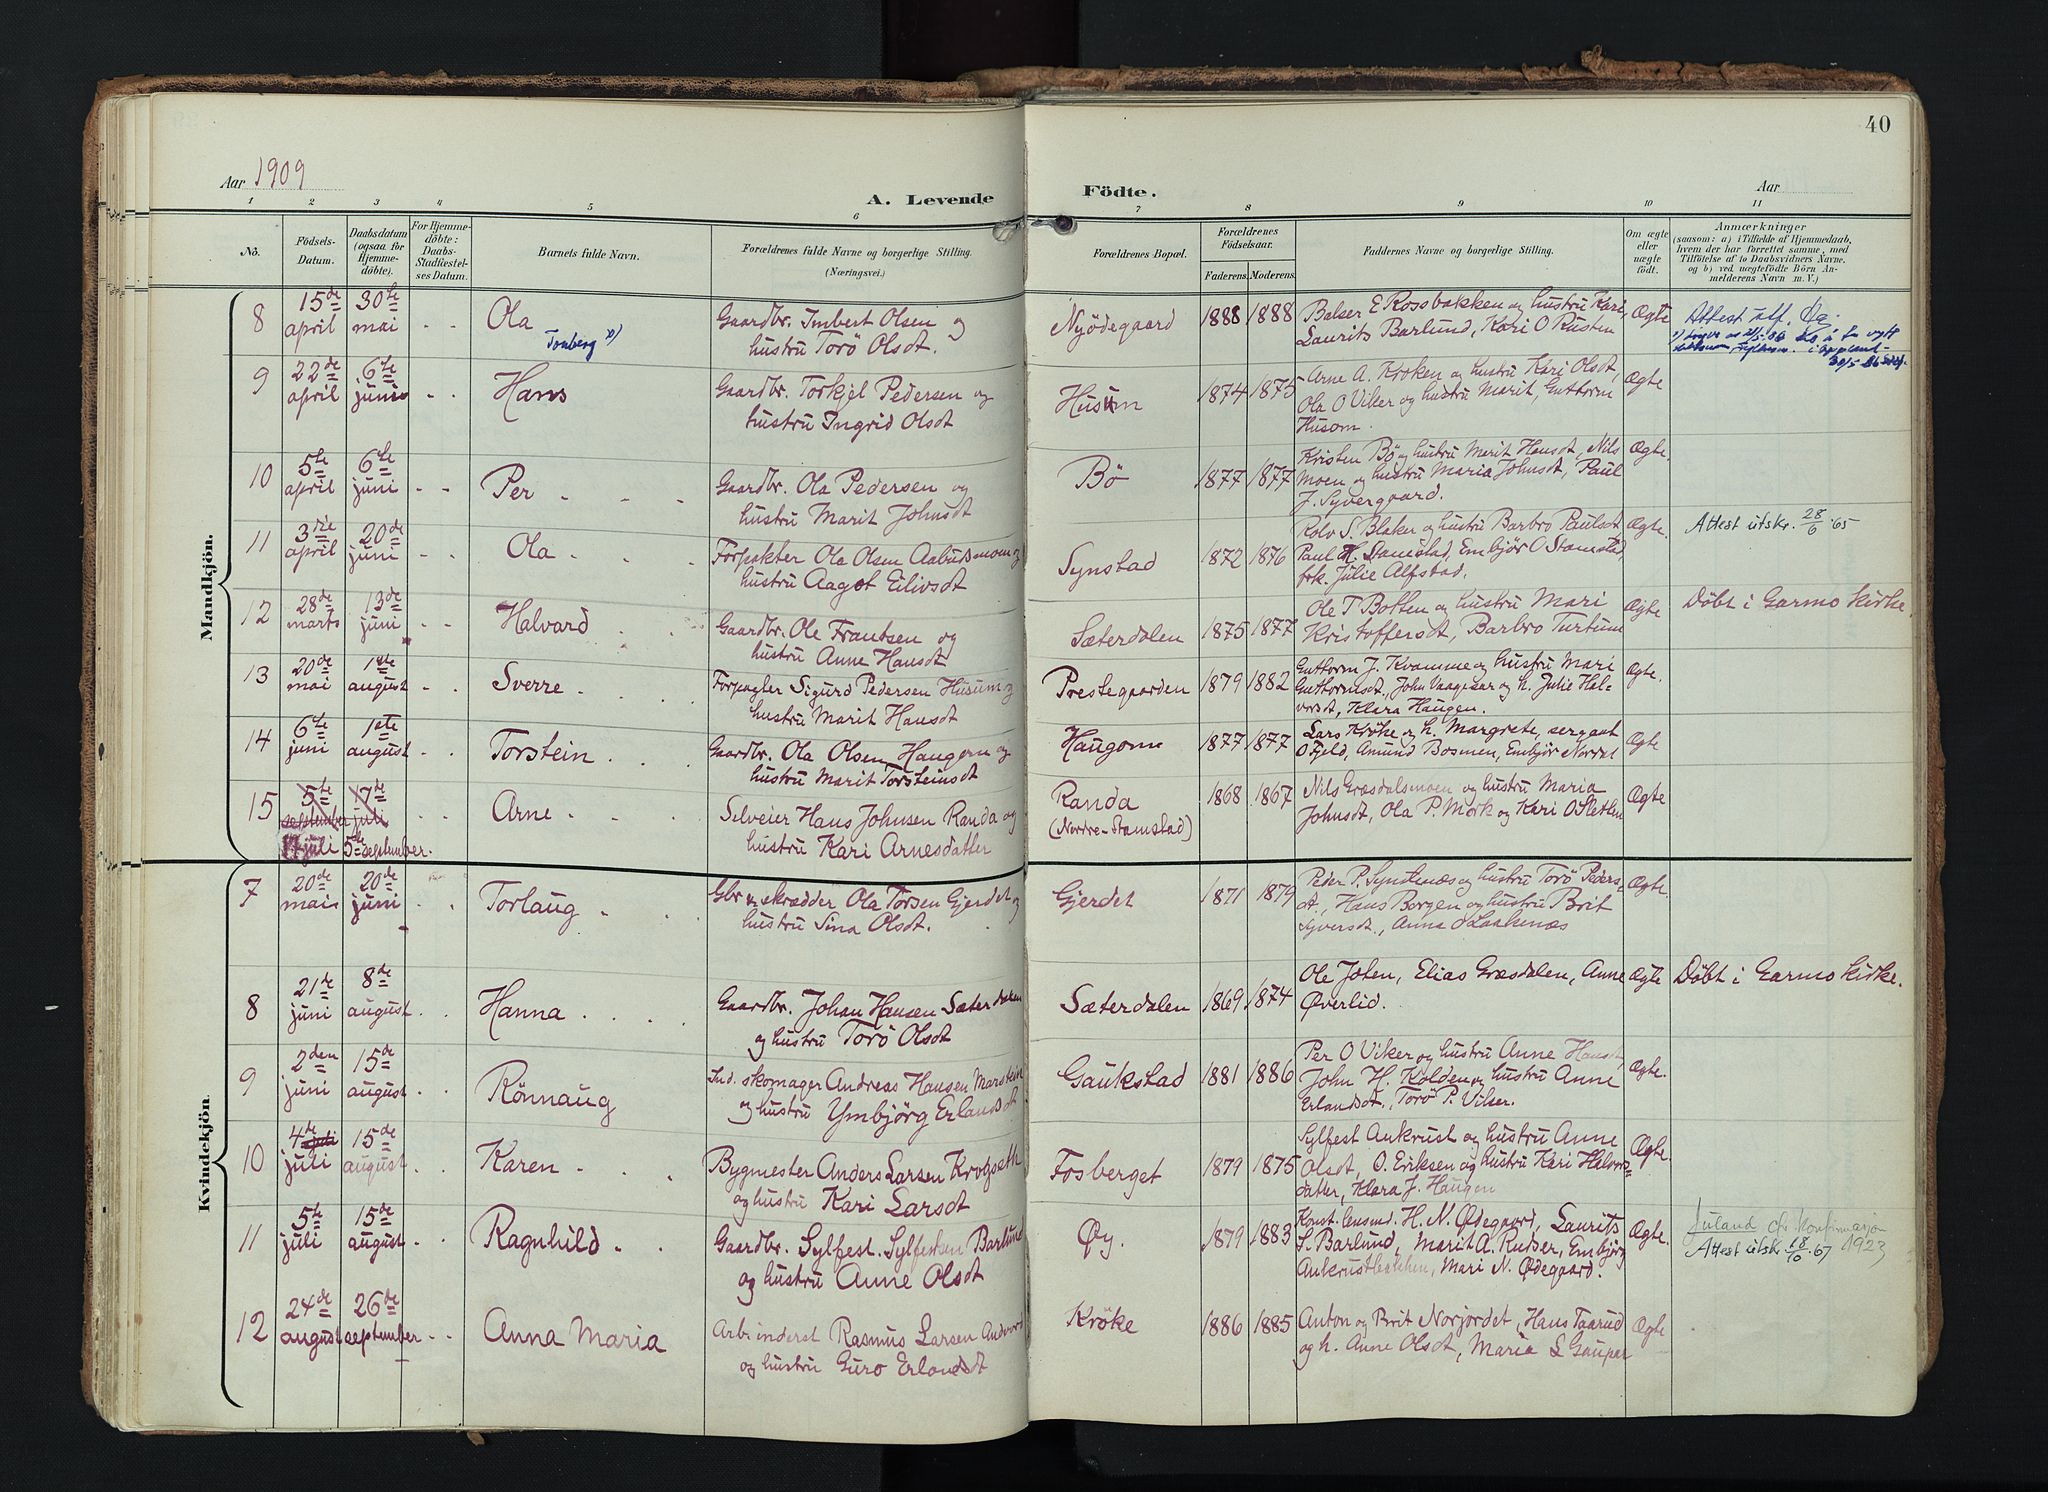 40
Aar 1909
A. Levende
Födte.
Aar
1 2 3 4 5 6 7 8 9 10 11
No.
Födsels-
Datum.
Daabsdatum
(ogsaa for
Hjemme-
döbte).
For Hjemme-
döbte:
Daabs-
Stadfæstel-
ses Datum.
Barnets fulde Navn.
Forældrenes fulde Navne og borgerlige Stilling.
(Næringsvei.)
Forældrenes Bopæl.
Forældrenes
Födselsaar.
Faderens. Moderens.
Faddernes Navne og borgerlige Stilling.
Om ægte
eller
uægte
födt.
Anmærkninger
(saasom: a) i Tilfælde af Hjemmedaab,
hvem der har forrettet samme, med
Tilföielse af to Daabsvidners Navne,
og b) ved uægtefödte Börn An-
melderens Navn m. V.)
Mandkjön.
8 15de april 30te mai Ola
Gaardbr. Imbert Olsen og
hustru Torö Olsdt.
Nyödegaard 1888 1888
Balser E Rossbakken og hustru Kari,
Laurits Barlund, Kari O Rusten
Ægte
Attest utf.
9 22de april 6te juni Hans
Gaardbr. Torkjel Pedersen og
hustru Ingrid Olsdt
Husum 1874 1875
Arne A. Kröken og hustru Kari Olsdt,
Ola O Viker og hustru Marit, Guttorm
Husom.
Ægte
10 5te april 6te juni Per
Gaardbr. Ola Pedersen og
hustru Marit Johnsdt
Bö 1877 1877
Kristen Bö og hustru Marit Hansdt, Nils
Moen og hustru Maria Johnsdt, Paul
J. Syvergaard.
Ægte.
11 3die april 20de juni Ola
Forpakter Ola Olsen Aabudsmoen og
hustru Aagot Eilivsdt
Synstad 1872 1876
Rolv S. Blaker og hustru Barbro Paulsdt
Paul H. Stamstad, Embjör O Stamstad,
frk. Julie Alfstad.
Ægte.
Attest utskr. 28/6 '65
12 28de marts 13de juni Halvard
Gaardbr. Ole Frantsen og
hustru Anne Hansdt
Sæterdalen 1875 1877
Ole T Botten og hustru Mari
Kristoffersdt, Barbro Turtum
Ægte
Döbt i Garmo kirke.
13 20de mai 1ste august Sverre
Forpagter Sigurd Pedersen Husum og
hustru Marit Hansdt
Prestegaarden 1879 1882
Guttorm J. Kvamme og hustru Mari
Guttormsdt., John Vaagasar og h. Julie Hal-
vorsdt, Klara Haugen.
Ægte.
14 6te juni 1ste august Torstein
Gaardbr. Ola Olsen Haugom og
hustru Marit Torsteinsdt
Haugom 1877 1877
Lars Kröke og h. Margrete, sergeant
O Fjeld, Amund Bosmen, Embjör Nordal
Ægte
15 5te september 17de juli Arne
17 juli 5te september.
Selveier Hans Johnsen Randa og
hustru Kari Arnesdatter
Randa
(Nordre-Stamstad)
1868 1867
Nils Græsdalsmoen og hustru Maria
Johnsdt, Ola P. Mork og Kari O Sletten
Ægte
Kvindekjön
7 20de mais 20de juni Torlaug
Gbr og skrædder Ola Torsen Gjerdet og
hustru Sina Olsdt.
Gjerdet 1871 1879
Peder P. Synstnæs og hustru Torö Peders-
dt., Hans Borgen og hustru Brit
Syversdt., Anna O Laakenæs
Ægte.
8 21de juni 8de august Hanna
Gaardbr. Johan Hansen Sæterdalen
og hustru Torö Olsdt
Sæterdalen 1869 1874
Ole Johen, Elias Græsdalen, Anne
Øverlid.
Ægte
Döbt i Garmo kirke.
9 2den juni 15de august Rönnaug
Ind. skomager Andreas Hansen Marstein
og hustru Ymbjörg Erlandsdt
Gaukstad 1881 1886
Per O Viker og hustru Anne Hansdt,
John H. Kolden og hustru Anne
Erlandsdt., Torö P. Viker.
Ægte.
10 4de juli 15de august Karen
Bygmester Anders Larsen Krogseth
og hustru Kari Larsdt
Fosberget 1879 1875
Sylfest Aukrust og hustru Anne
Olsdt, O. Eriksen og hustru Kari Halvors-
datter, Klara J. Haugen
Ægte.
11 5te juli 15de august Ragnhild
Gaardbr. Sylfest Sylfestsen Barlund
og hustru Anne Olsdt
Øy. 1879 1883
Konst. lensmd. H. N. Ødegaard, Laurits
S. Barlund, Marit A. Rudser, Embjörg
Aukrustbakken, Mari N. Ødegaard.
Ægte.
Juland cfr. Konfirmasjon
1923
Attest utskr. 18/10 '67
12 24de august 26de september Anna Maria
Arb. inderst Rasmus Larsen Andvord
og hustru Guro Erlandsdt
Kröke 1886 1885
Anton og Brit Norjordet, Hans Taarud
og h. Anne Olsdt, Maria L Gaupar
Ægte